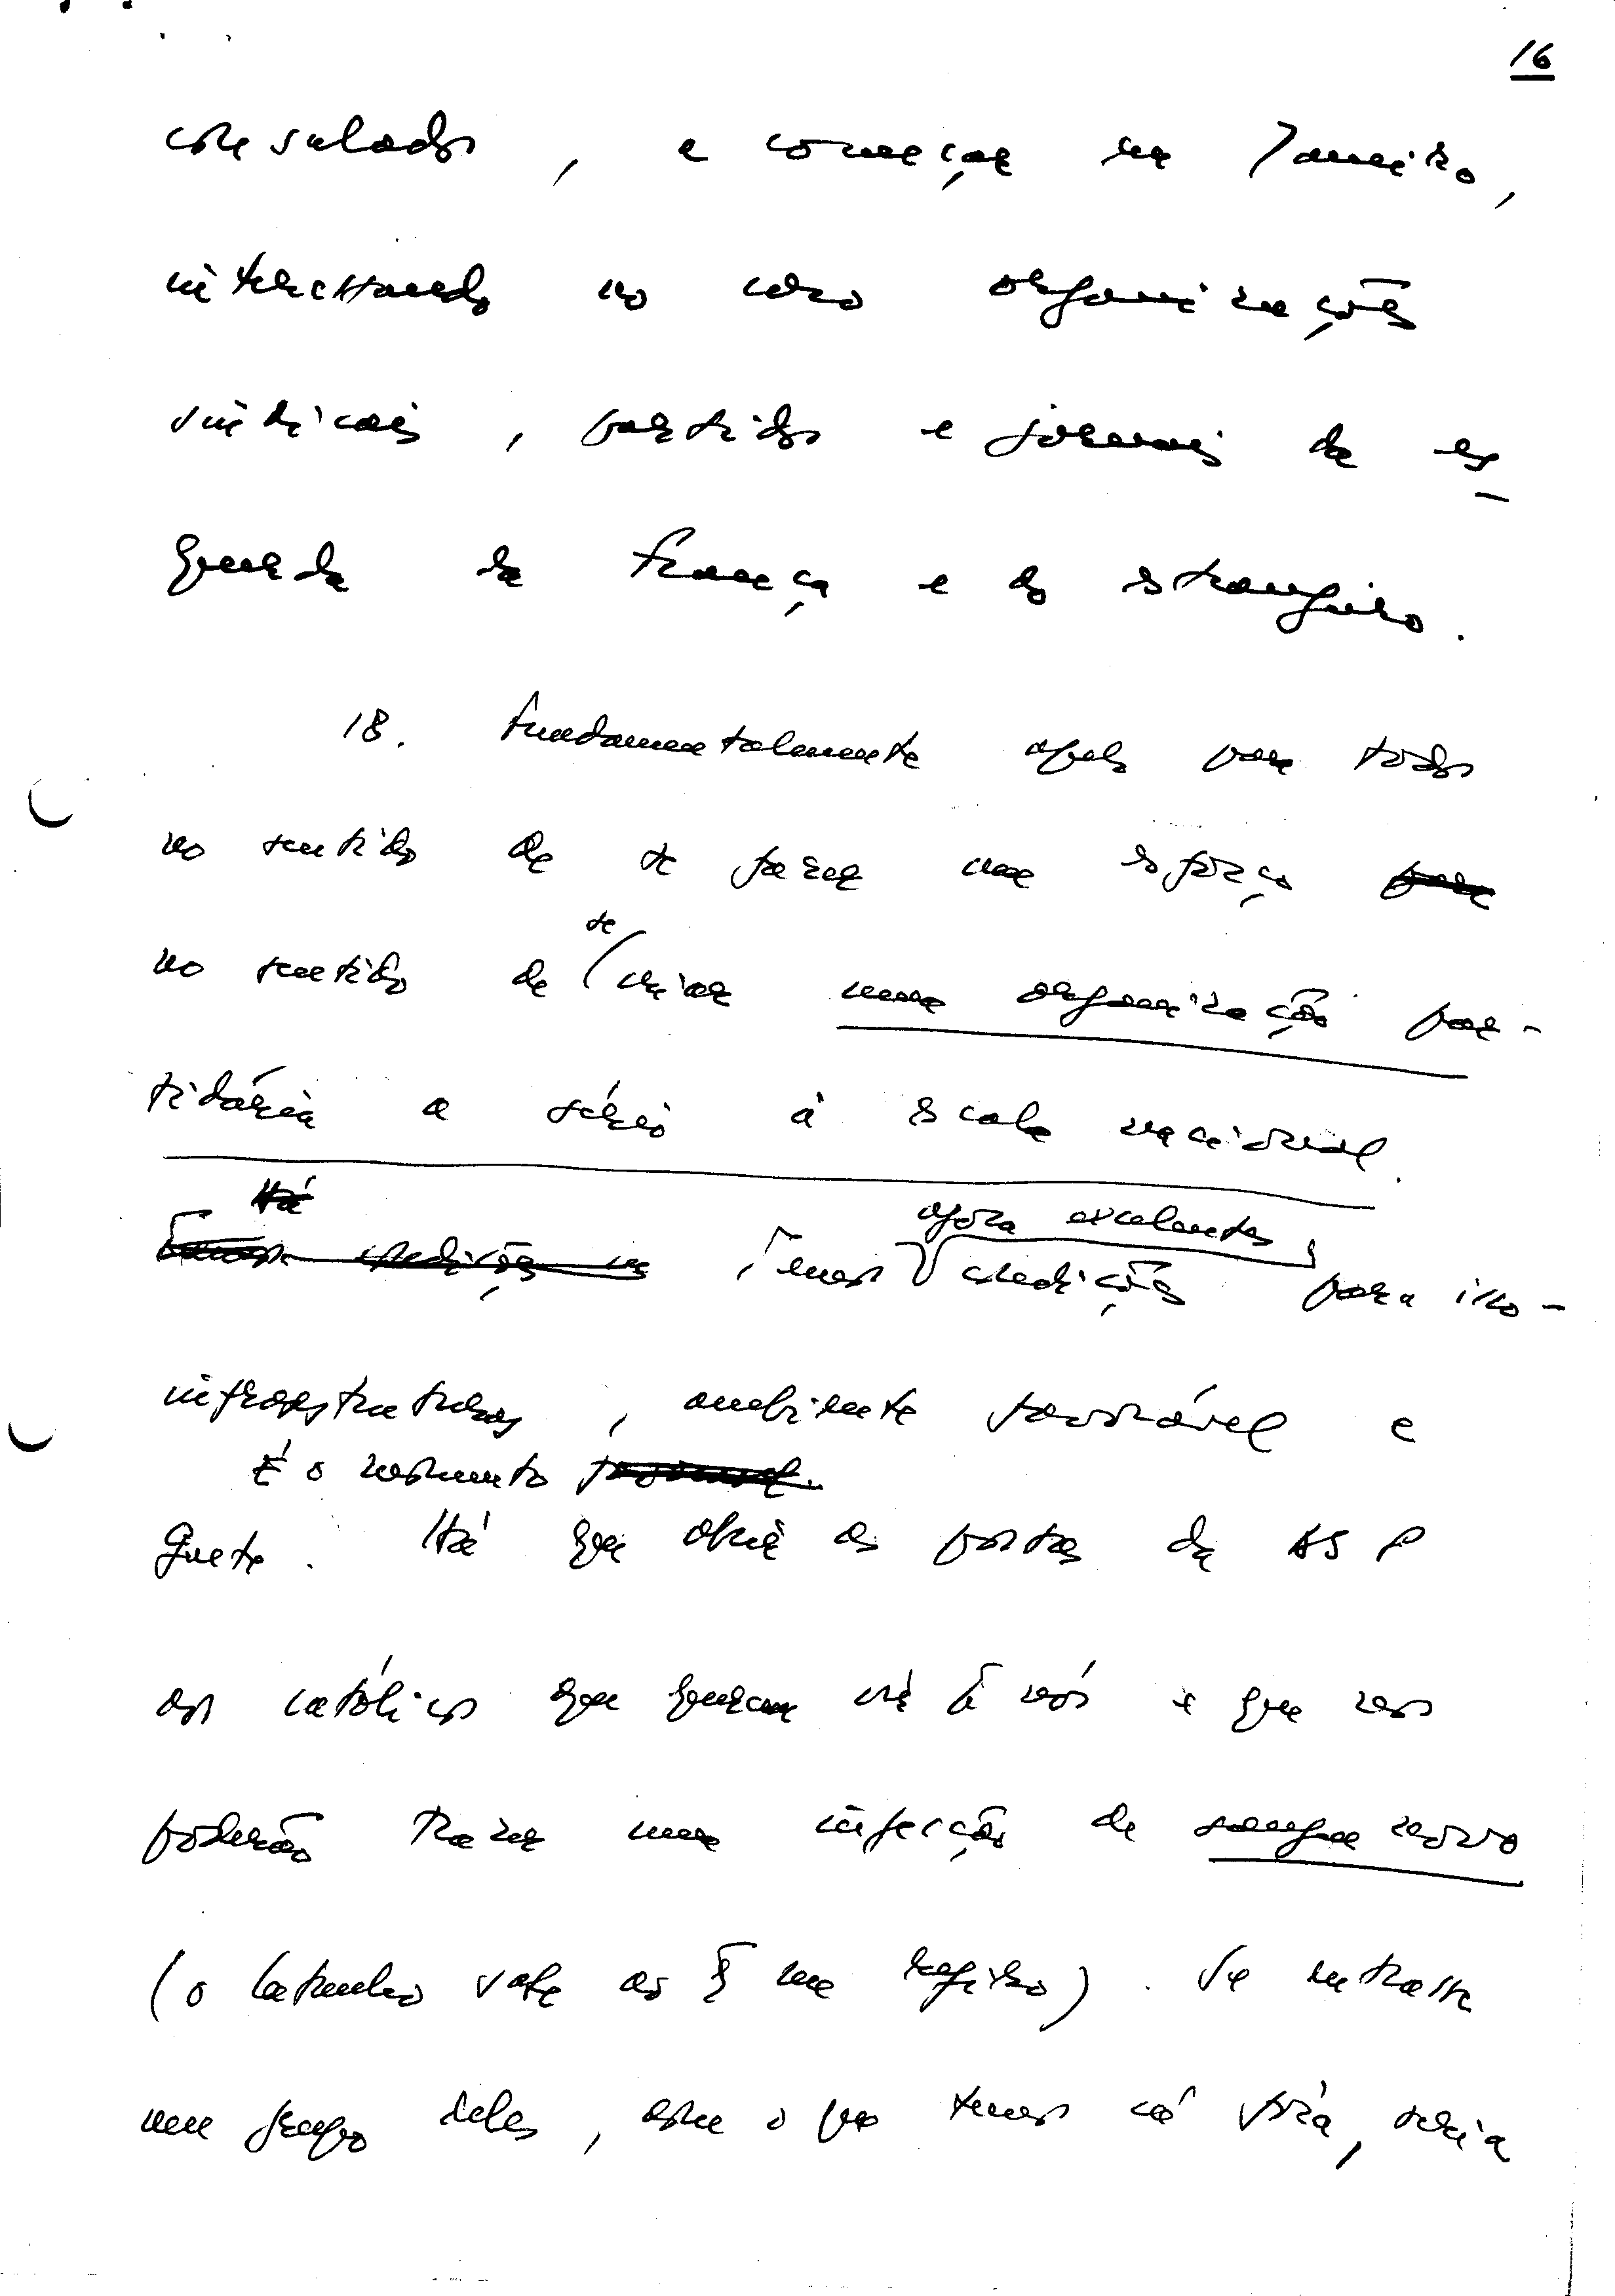 16
consulados, e começar em Janeiro,
interessando no caso organizações
sindicais, partidos e jornais da es-
querda da França e do estrangeiro.
18. Fundamentalmente apelo para todos
no sentido de se fazer um esforço para
no sentido de se criar uma organização par-
tidária a sério à escala nacional.
Há
agora excelentes
Temos condições Temos condições para isso -
infraestruturas, ambiente favorável e
É o momento
gente. Há que abrir as portas da ASP
aos católicos que queiram vir a nós e que nos
poderão trazer uma injecção de sangue novo
(o Catanho vale os § que refiro). Se entrasse
um grupo deles, com o que temos lá fora, seria